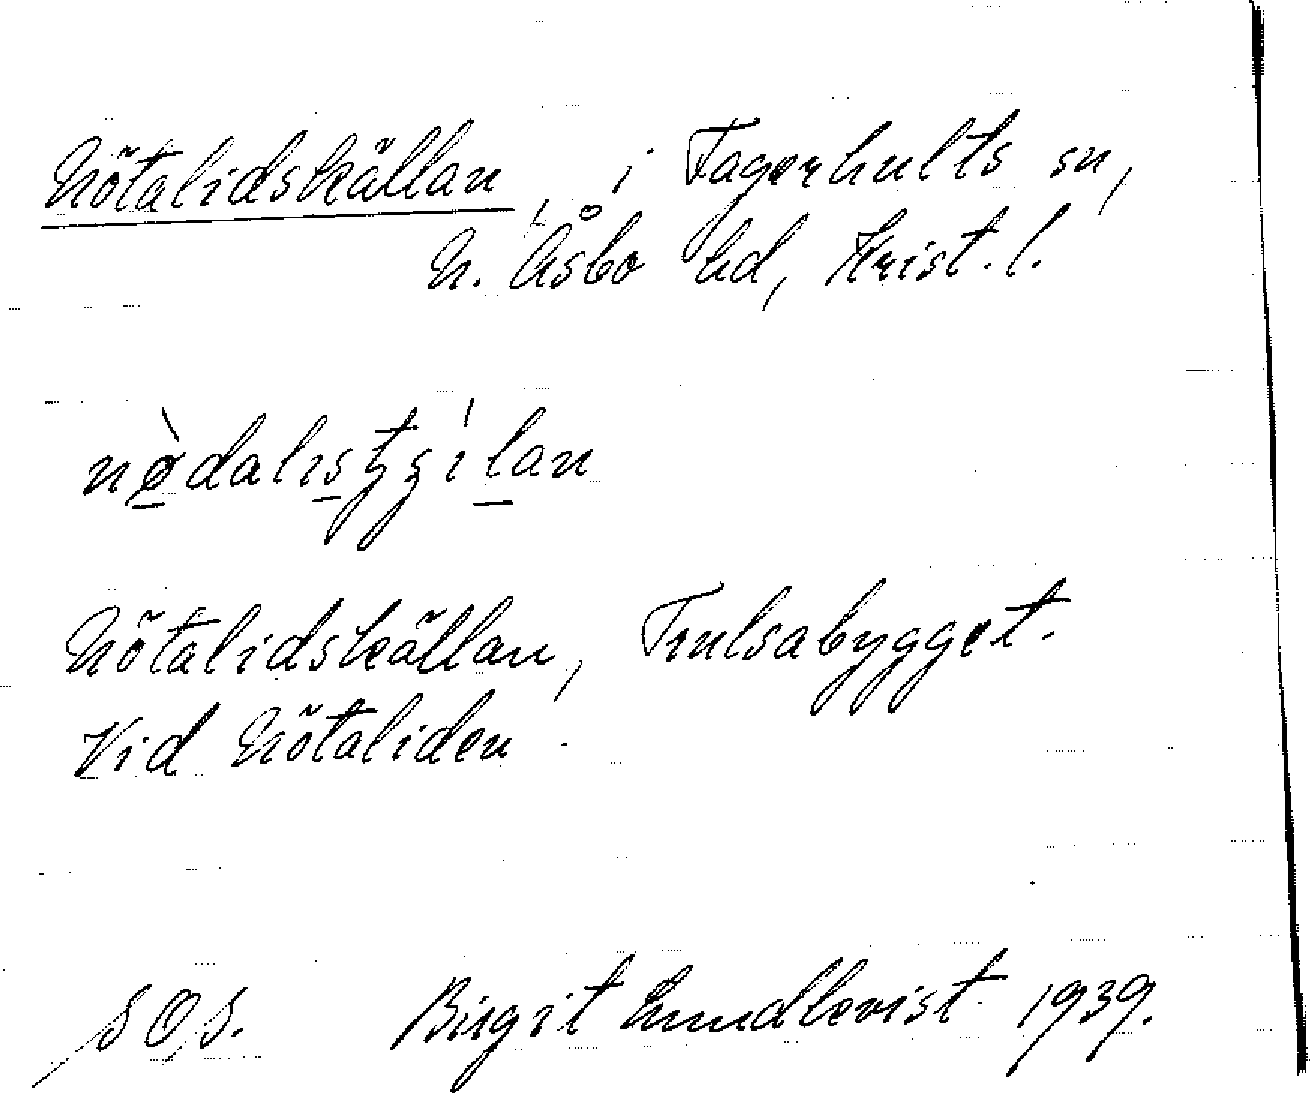 Nötalidskällan, i Fagerhults sn,
N. Åsbo hd, Krist. l.
Nötalidskällan, Trulsabygget.
Vid Nötaliden
S O S. Birgit Lundkvist 1939.